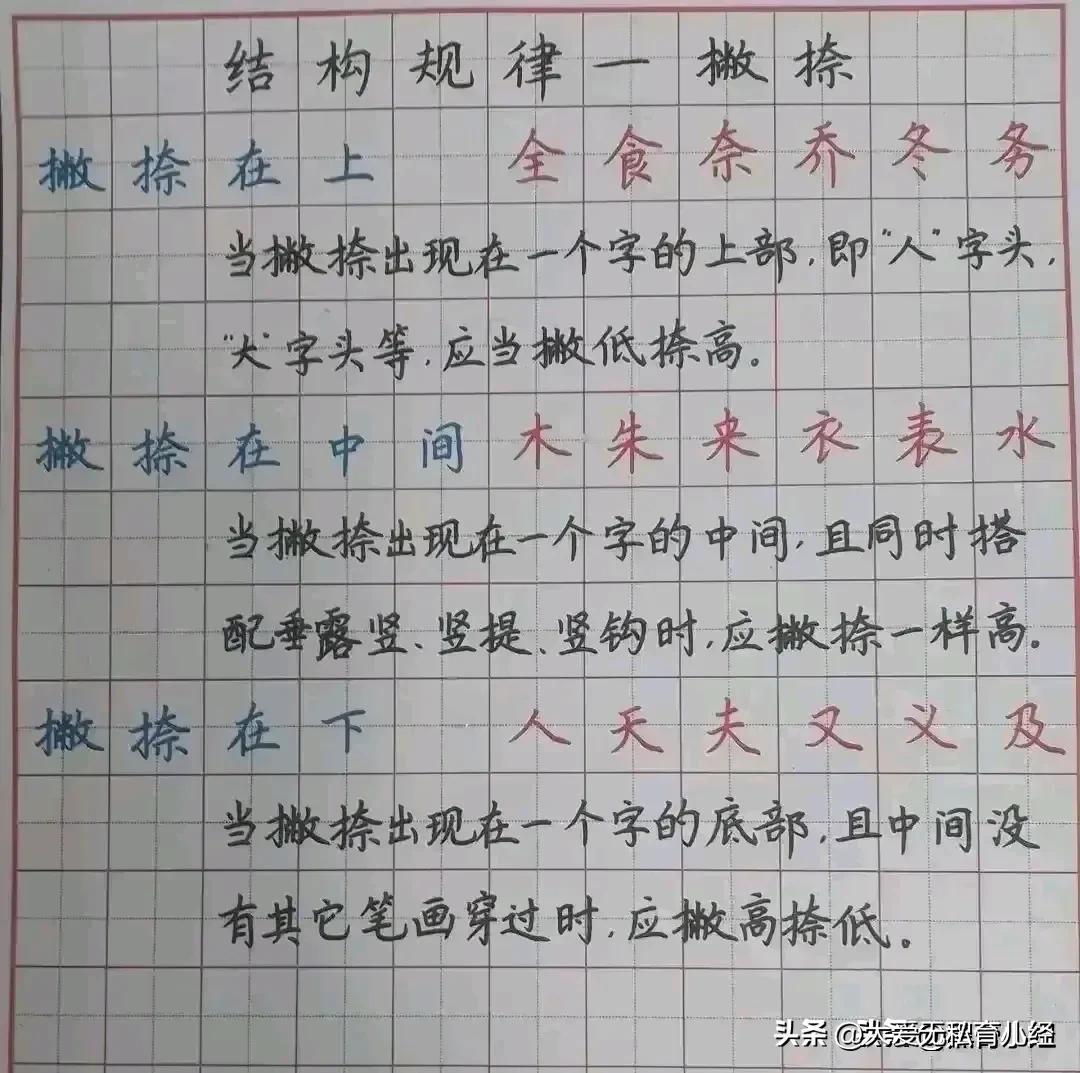 结构规律一撇捺
撇捺在上 全食奈乔冬务
当撇捺出现在一个字的上部,即“人”字头,
“大”字头等,应当撇低捺高。
撇捺在中间 木朱来衣表水
当撇捺出现在一个字的中间,且同时搭
配垂露竖、竖提、竖钩时,应撇捺一样高。
撇捺在下 人天夫又义及
当撇捺出现在一个字的底部,且中间没
有其它笔画穿过时,应撇高捺低。
头条 @大爱无私育儿经